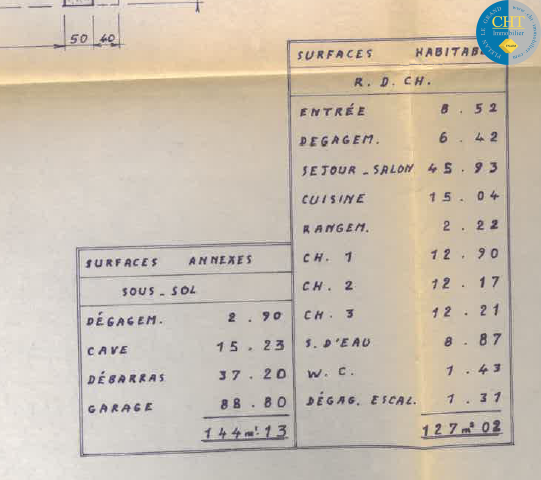 50 40
SURFACES HABITAB
R. D. CH.
ENTRÉE 8.52
DEGAGEM. 6.42
SEJOUR_SALON 45.93
CUISINE 15.04
RANGEM. 2.22
CH. 1 12.90
CH. 2 12.17
CH. 3 12.21
S. D'EAU 8.87
W.C. 1.43
DÉGAG. ESCAL. 1.31
127m² 02
SURFACES ANNEXES
SOUS_SOL
DÉGAGEM. 2.90
CAVE 15.23
DÉBARRAS 37.20
GARAGE 88.80
144m² 13
PLÉLAN LE GRAND
CHT
Immobilier